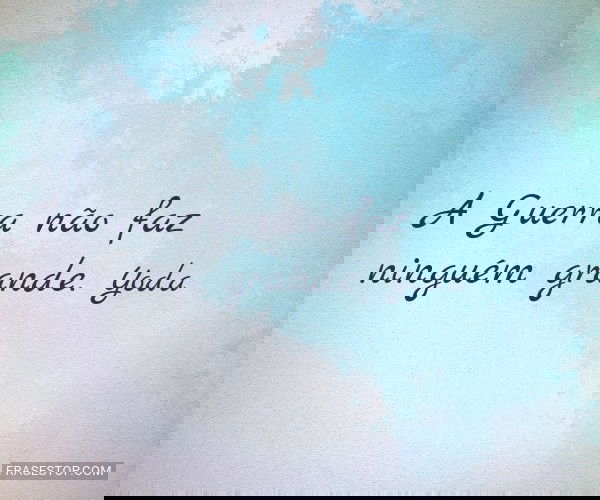 A Guerra não faz
ninguém grande. Yoda
FRASESTOP.COM